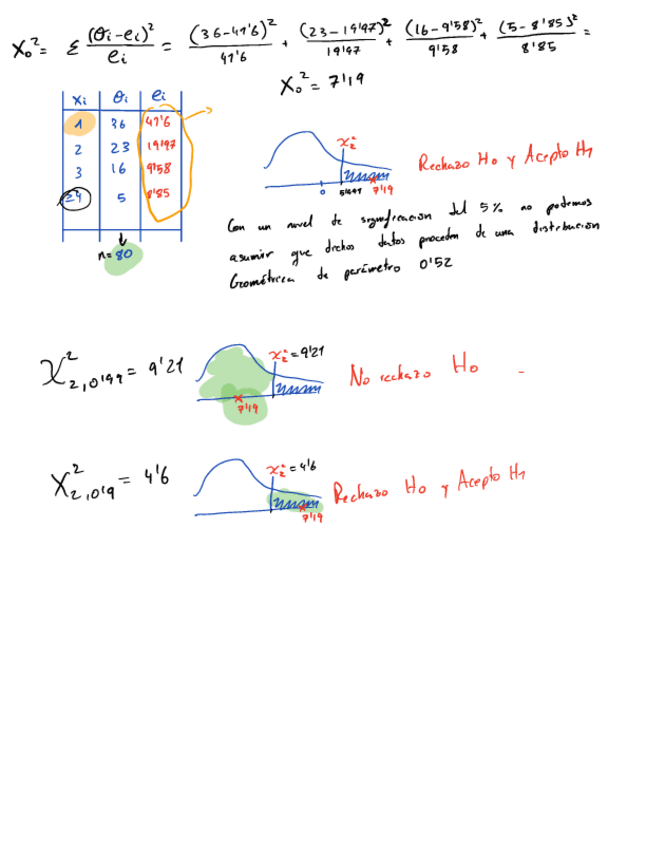 X₀² = Σ (θi-ei)²/ei = (36-41'6)²/41'6 + (23-19'97)²/19'97 + (16-9'58)²/9'58 + (5-8'85)²/8'85 =
X₀² = 7'19
xi θi ei
1 36 41'6
2 23 19'97
3 16 9'58
≥4 5 8'85
n= 80
χ₂²
0 5'991 7'19
Rechazo Ho y Acepto H1
Con un nivel de significación del 5% no podemos
asumir que dichos datos proceden de una distribución
Geométrica de parámetro 0'52
χ²₂,₀'₉₉ = 9'21
χ₂² = 9'21
7'19
No rechazo Ho -
χ²₂,₀'₉ = 4'6
χ₂² = 4'6
7'19
Rechazo Ho y Acepto H1